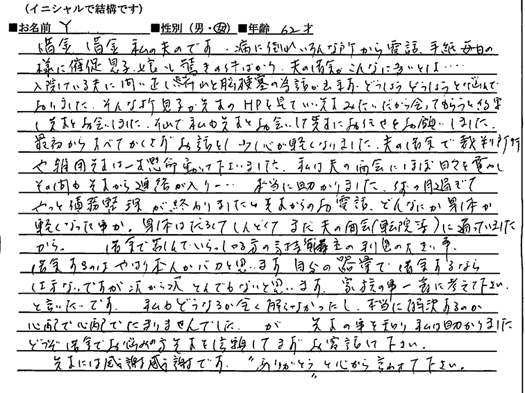 (イニシャルで結構です)
■お名前 Y ■性別(男・女)■年齢 62才
借金、借金 私の夫のです。病に倒れいろんな所から電話、手紙 毎日の
様に催促 息子、娘も驚きのけばかり。夫の借金がこんなに多いとは…
入院している夫に問い正し
おりました。そんな折 息子が先生のHPを見ていい先生みたいだから会ってもらうと
し先生とお会いしました。そして私も先生とお会いして先生にお任せをお願いしました。
最初からすべてかくさずお話をし 少し心が軽くなりました。夫の借金で裁判所
や 先生は一生懸命動って下さいました。私は夫の面会にほぼ日々を費し
その間も先生から連絡が入り…本当に助かりました。
やっと債務整理が終わりましたと先生からのお電話、どんなにか身体が
軽くなった事か。身体はだるくてしんどくて まだ夫の面会(転院等)に通っていました
から。 借金で苦しんでいらっしゃる方の気持
借金するのは やはり本人がバカと思います 自分の器量で借金するなら
仕方ないですが次から次 とんでもないと思います。家族の事一番に考えて下さい
と言いたいです。私もどうなるか全く解らなかったし、本当に解決するのか
心配で心配でたまりませんでした。が 先生の事を知り私は助かりました
どうぞ借金でお悩みの方先生を信頼してまずお電話して下さい。
先生には感謝感謝です。“ありがとう”と心から言わせて下さい。